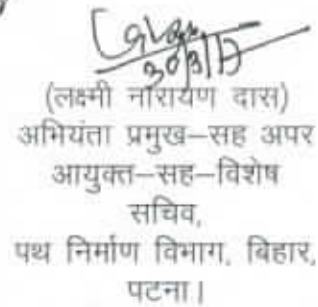 (लक्ष्मी नारायण दास)
अभियंता प्रमुख–सह अपर
आयुक्त–सह–विशेष
सचिव,
पथ निर्माण विभाग, बिहार,
पटना।